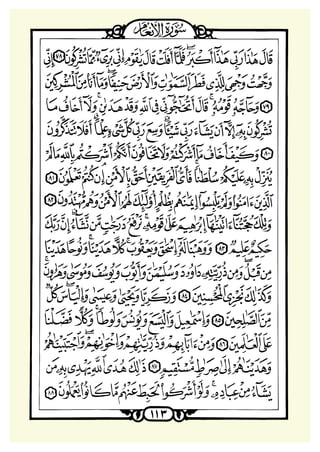 سُورَةُ الْأَنْعَامِ
قَالَ هَٰذَا رَبِّي هَٰذَا أَكْبَرُ فَلَمَّا أَفَلَتْ قَالَ يَٰقَوْمِ إِنِّي بَرِيءٌ مِّمَّا تُشْرِكُونَ ٧٨ إِنِّي
وَجَّهْتُ وَجْهِيَ لِلَّذِي فَطَرَ السَّمَٰوَٰتِ وَالْأَرْضَ حَنِيفًا وَمَا أَنَا مِنَ الْمُشْرِكِينَ
٧٩ وَحَاجَّهُ قَوْمُهُ قَالَ أَتُحَٰجُّونِّي فِي اللَّهِ وَقَدْ هَدَىٰنِ وَلَا أَخَافُ مَا
تُشْرِكُونَ بِهِ إِلَّا أَن يَشَاءَ رَبِّي شَيْئًا وَسِعَ رَبِّي كُلَّ شَيْءٍ عِلْمًا أَفَلَا تَتَذَكَّرُونَ
٨٠ وَكَيْفَ أَخَافُ مَا أَشْرَكْتُمْ وَلَا تَخَافُونَ أَنَّكُمْ أَشْرَكْتُم بِاللَّهِ مَا لَمْ
يُنَزِّلْ بِهِ عَلَيْكُمْ سُلْطَٰنًا فَأَيُّ الْفَرِيقَيْنِ أَحَقُّ بِالْأَمْنِ إِن كُنتُمْ تَعْلَمُونَ ٨١
الَّذِينَ ءَامَنُوا وَلَمْ يَلْبِسُوا إِيمَٰنَهُم بِظُلْمٍ أُولَٰئِكَ لَهُمُ الْأَمْنُ وَهُم مُّهْتَدُونَ ٨٢
وَتِلْكَ حُجَّتُنَا ءَاتَيْنَٰهَا إِبْرَٰهِيمَ عَلَىٰ قَوْمِهِ نَرْفَعُ دَرَجَٰتٍ مَّن نَّشَاءُ إِنَّ رَبَّكَ
حَكِيمٌ عَلِيمٌ ٨٣ وَوَهَبْنَا لَهُ إِسْحَٰقَ وَيَعْقُوبَ كُلًّا هَدَيْنَا وَنُوحًا هَدَيْنَا
مِن قَبْلُ وَمِن ذُرِّيَّتِهِ دَاوُودَ وَسُلَيْمَٰنَ وَأَيُّوبَ وَيُوسُفَ وَمُوسَىٰ وَهَٰرُونَ
وَكَذَٰلِكَ نَجْزِي الْمُحْسِنِينَ ٨٤ وَزَكَرِيَّا وَيَحْيَىٰ وَعِيسَىٰ وَإِلْيَاسَ كُلٌّ
مِّنَ الصَّٰلِحِينَ ٨٥ وَإِسْمَٰعِيلَ وَالْيَسَعَ وَيُونُسَ وَلُوطًا وَكُلًّا فَضَّلْنَا
عَلَى الْعَٰلَمِينَ ٨٦ وَمِنْ ءَابَائِهِمْ وَذُرِّيَّٰتِهِمْ وَإِخْوَٰنِهِمْ وَاجْتَبَيْنَٰهُمْ
وَهَدَيْنَٰهُمْ إِلَىٰ صِرَٰطٍ مُّسْتَقِيمٍ ٨٧ ذَٰلِكَ هُدَى اللَّهِ يَهْدِي بِهِ مَن
يَشَاءُ مِنْ عِبَادِهِ وَلَوْ أَشْرَكُوا لَحَبِطَ عَنْهُم مَّا كَانُوا يَعْمَلُونَ ٨٨
١١٣